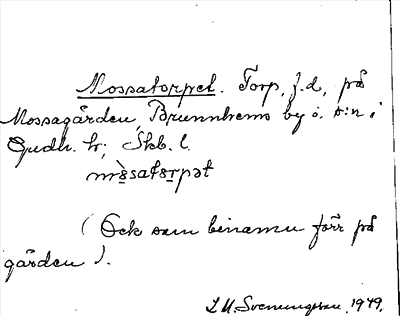 Mossatorpet. Torp, f.d., på
Mossagården, Brunnhems by o. s:n i
Gudh. hr; Skb. l.
(Ock som binamn förr på
gården).
L.M. Svenungsson 1949.